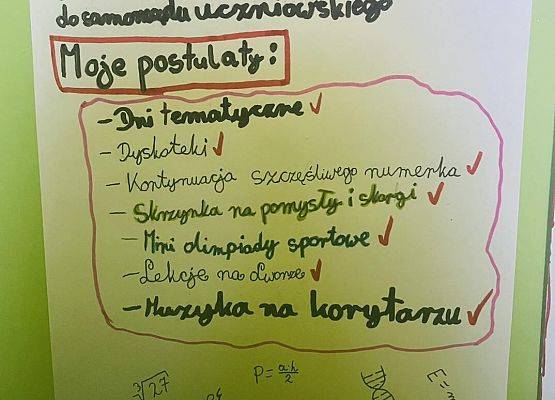 do samorządu uczniowskiego
Moje postulaty:
- Dni tematyczne ✓
- Dyskoteki ✓
- Kontynuacja szczęśliwego numerka ✓
- Skrzynka na pomysły i skargi ✓
- Mini olimpiady sportowe ✓
- Lekcje na dworze ✓
- Muzyka na korytarzu ✓
∛27
P = a·h/2
E=m